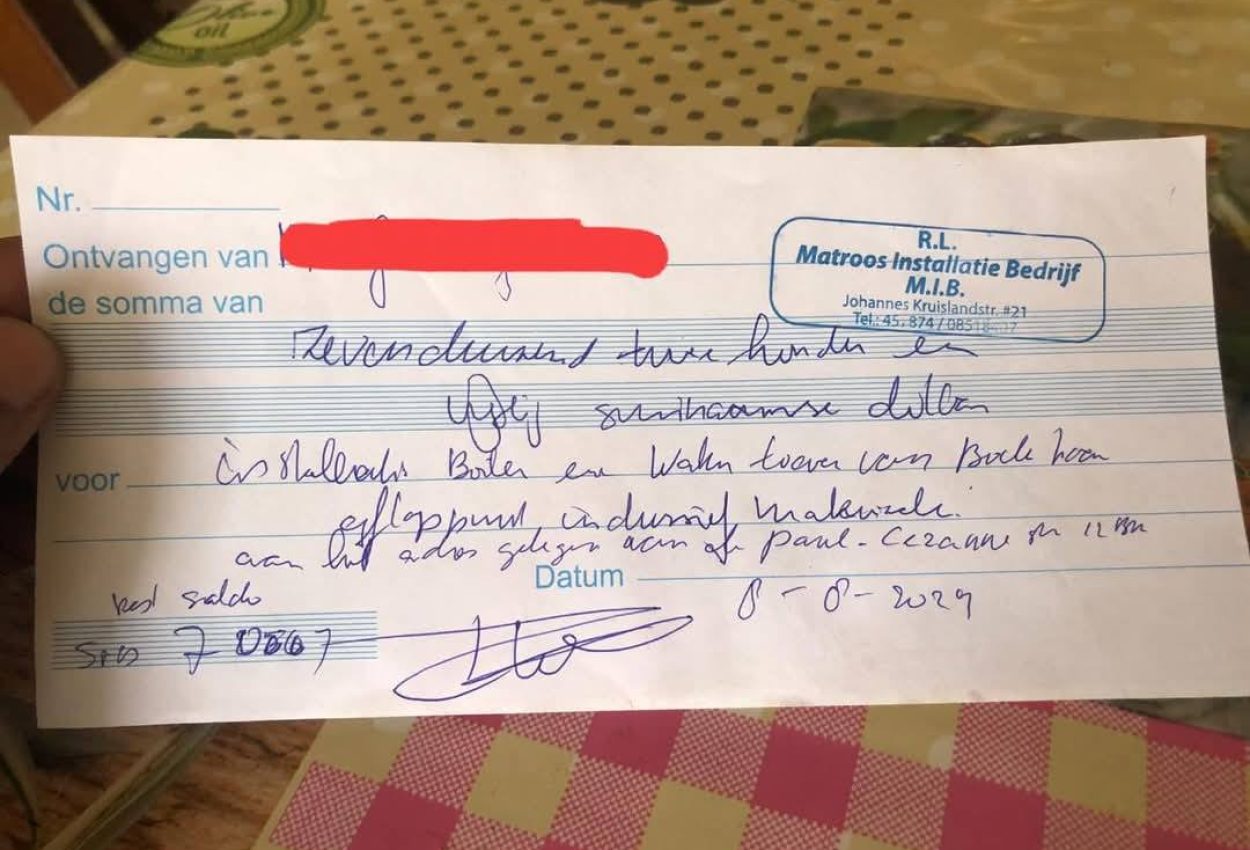 Olive
oil
Nr.
Ontvangen van
R.L.
Matroos Installatie Bedrijf
M.I.B.
Johannes Kruislandstr. #21
Tel.: 45. 874 / 0851
de somma van
Zevenduizend twee honder en
surinaamse dollar
voor installatie Boiler en Water toever van
inclusief materiale.
aan het adres gelegen aan de Paul-Cezanne str 12
Datum 8-8-2024
rest saldo
SRD 7